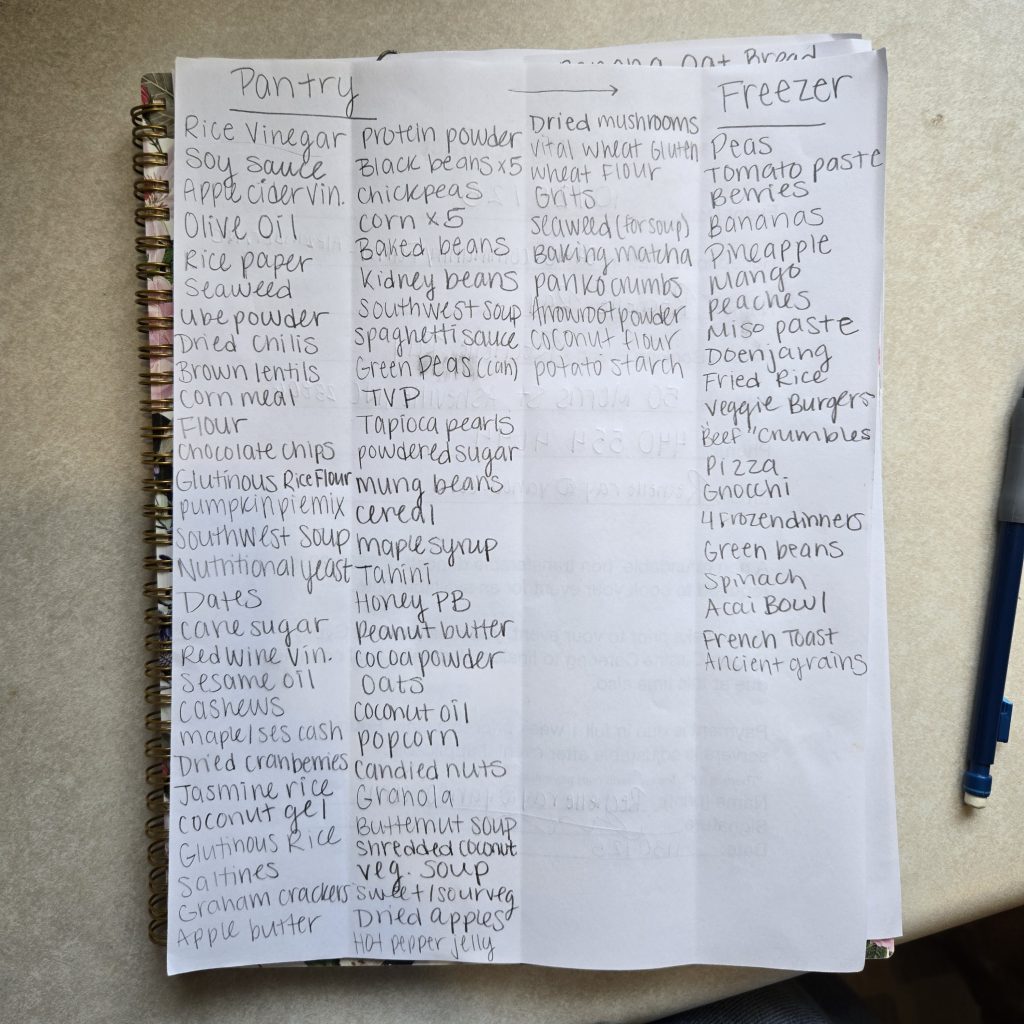 Banana Oat Bread
Pantry
Rice Vinegar
Soy sauce
Apple cider vin.
Olive Oil
Rice paper
Seaweed
Ube powder
Dried chilis
Brown lentils
Corn meal
Flour
Chocolate chips
Glutinous Rice Flour
pumpkin pie mix
Southwest Soup
Nutritional yeast
Dates
cane sugar
Red wine Vin.
Sesame oil
Cashews
maple/ses cash
Dried cranberries
Jasmine rice
coconut gel
Glutinous Rice
Saltines
Graham crackers
Apple butter
Protein powder
Black beans x5
Chickpeas
Corn x5
Baked beans
Kidney beans
Southwest soup
Spaghetti sauce
Green Peas (can)
TVP
Tapioca pearls
powdered sugar
mung beans
cereal
maple syrup
Tahini
Honey PB
Peanut butter
cocoa powder
Oats
coconut oil
popcorn
Candied nuts
Granola
Butternut soup
Shredded coconut
Veg. Soup
Sweet/sour veg
Dried apples
Hot pepper jelly
→
Dried mushrooms
Vital wheat Gluten
Wheat Flour
Grits
Seaweed (for soup)
Baking matcha
Panko crumbs
Arrowroot powder
Coconut flour
potato starch
Freezer
Peas
Tomato paste
Berries
Bananas
Pineapple
Mango
Peaches
Miso paste
Doenjang
Fried Rice
Veggie Burgers
"Beef" Crumbles
Pizza
Gnocchi
4 Frozen dinners
Green beans
Spinach
Acai Bowl
French Toast
Ancient grains